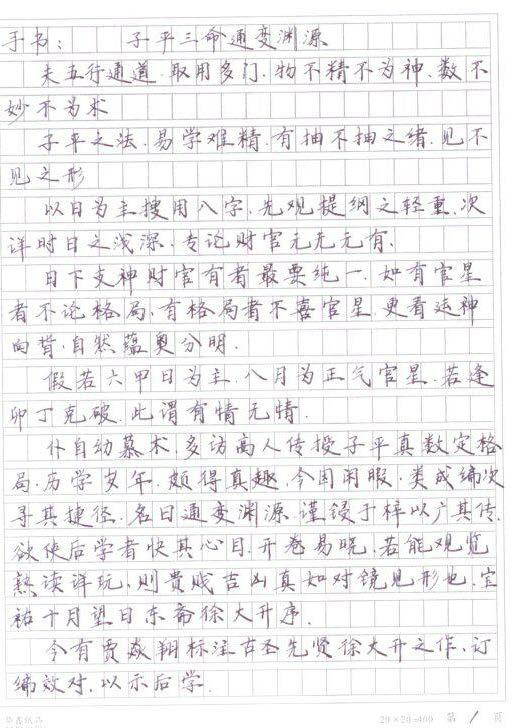 手书： 子平三命通变渊源
夫五行通道．取用多门．物不精不为神．数不
妙不为术
子平之法．易学难精．有抽不抽之绪．见不
见之形
以日为主搜用八字．先观提纲之轻重．次
详时日之浅深．专论财官元先元有．
日下支神财官有者最要纯一．如有官星
者不论格局．有格局者不喜官星．更看运神
向背．自然蕴奥分明．
假若六甲日为主．八月为正气官星．若逢
卯丁克破．此谓有情无情．
仆自幼慕术．多访高人传授子平真数定格
局．历学岁年．颇得真趣．今因闲暇．类成编次
寻其捷径．名曰通变渊源．谨锓于梓以广其传．
欲使后学者快其心目．开卷易晓．若能观览
熟读详玩．则贵贱吉凶真如对镜见形也．宝
祐十月望日东斋徐大升序．
今有贾焱翔标注古圣先贤徐大升之作．订
编效对．以示后学．
20×20=400 第 1 页